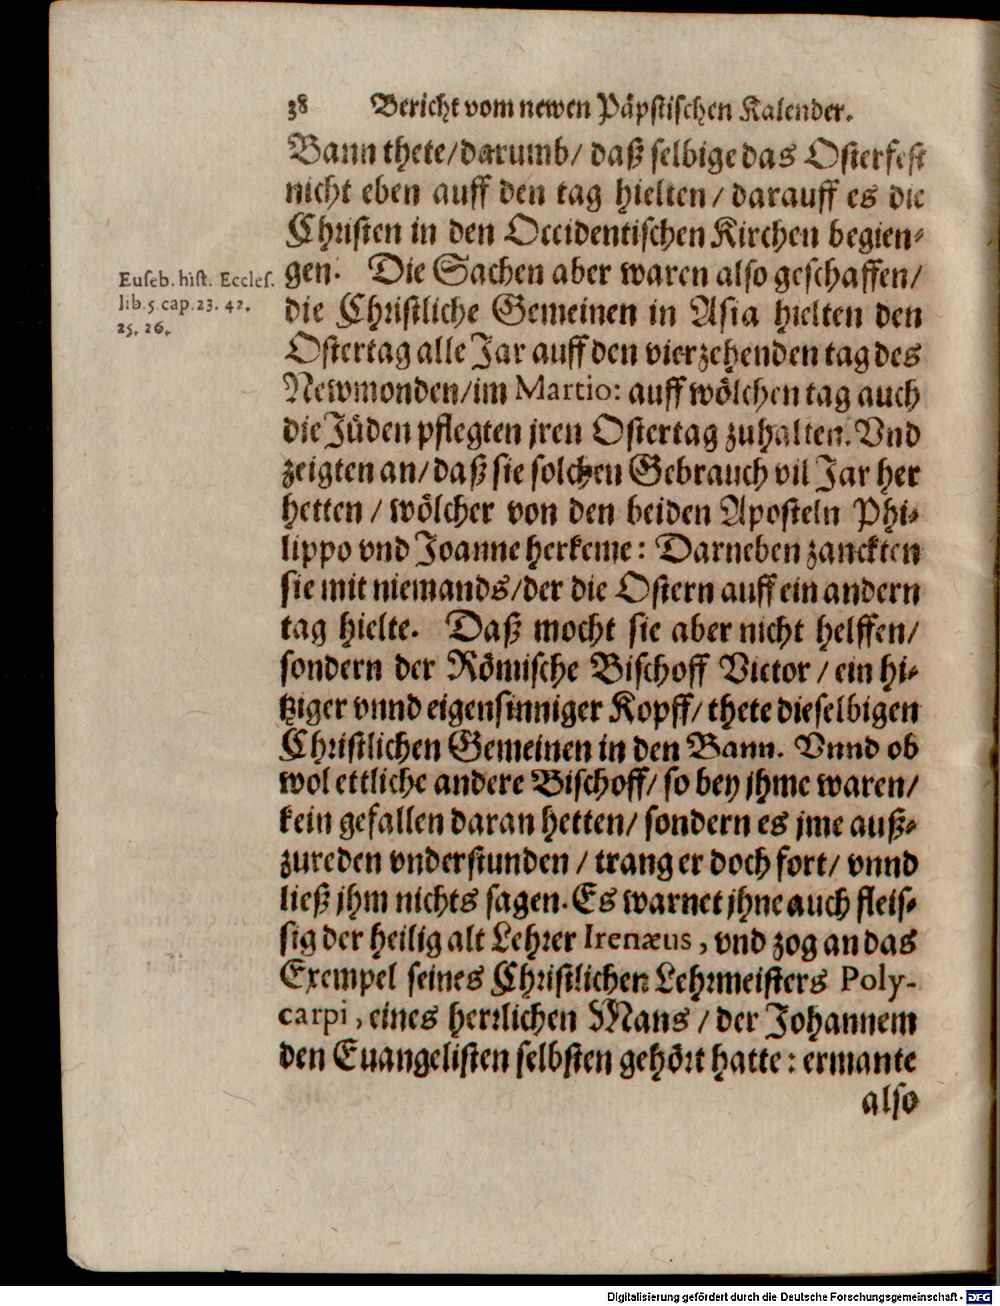 38 Bericht vom newen Päpstischen Kalender.
Bann thete/ darumb/ daß selbige das Osterfest
nicht eben auff den tag hielten/ darauff es die
Christen in den Occidentischen Kirchen begien-
gen. Die Sachen aber waren also geschaffen/
die Christliche Gemeinen in Asia hielten den
Ostertag alle Jar auff den vierzehenden tag des
Newmonden/ im Martio: auff wölchen tag auch
die Jüden pflegten jren Ostertag zuhalten. Vnd
zeigten an/ daß sie solchen Gebrauch vil Jar her
hetten/ wölcher von den beiden Aposteln Phi-
lippo vnd Joanne herkeme: Darneben zanckten
sie mit niemands/ der die Ostern auff ein andern
tag hielte. Daß mocht sie aber nicht helffen/
sondern der Römische Bischoff Victor/ ein hi-
tziger vnnd eigensinniger Kopff/ thete dieselbigen
Christlichen Gemeinen in den Bann. Vnnd ob
wol ettliche andere Bischoff/ so bey jhme waren/
kein gefallen daran hetten/ sondern es jme auß-
zureden vnderstunden/ trang er doch fort/ vnnd
ließ jhm nichts sagen. Es warnet jhne auch fleis-
sig der heilig alt Lehrer Irenæus, vnd zog an das
Exempel seines Christlichen Lehrmeisters Poly-
carpi, eines herrlichen Mans/ der Johannem
den Euangelisten selbsten gehört hatte: ermante
also
Euseb. hist. Eccles.
lib. 5. cap. 23. 42.
25. 26.
Digitalisierung gefördert durch die Deutsche Forschungsgemeinschaft - DFG